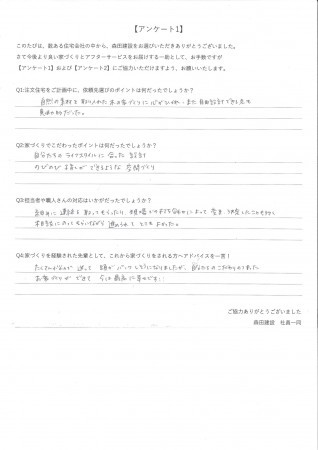 【アンケート1】
このたびは、数ある住宅会社の中から、森田建設をお選びいただきありがとうございました。
さて今後より良い家づくりとアフターサービスをお届けする一助として、お手数ですが
【アンケート1】および【アンケート2】にご協力いただけますよう、お願いいたします。
Q1:注文住宅をご計画中に、依頼先選びのポイントは何だったでしょうか?
自然の素材を取り入れた木の家づくりに心がひかれ、また自由設計できる点も
魅力的だった。
Q2:家づくりでこだわったポイントは何だったでしょうか?
自分たちのライフスタイルに合った設計
のびのびと暮しができるような空間づくり
Q3:担当者や職人さんの対応はいかがだったでしょうか?
連絡を取ってもらったり、現場での打ち合わせによって
進められてとてもよかった。
Q4:家づくりを経験された先輩として、これから家づくりをされる方へアドバイスを一言!
たくさん悩んで迷って頭がパンクしそうになりましたが、自分たちのこだわりをもった
お家づくりができて今は最高に幸せです!
ご協力ありがとうございました
森田建設 社員一同